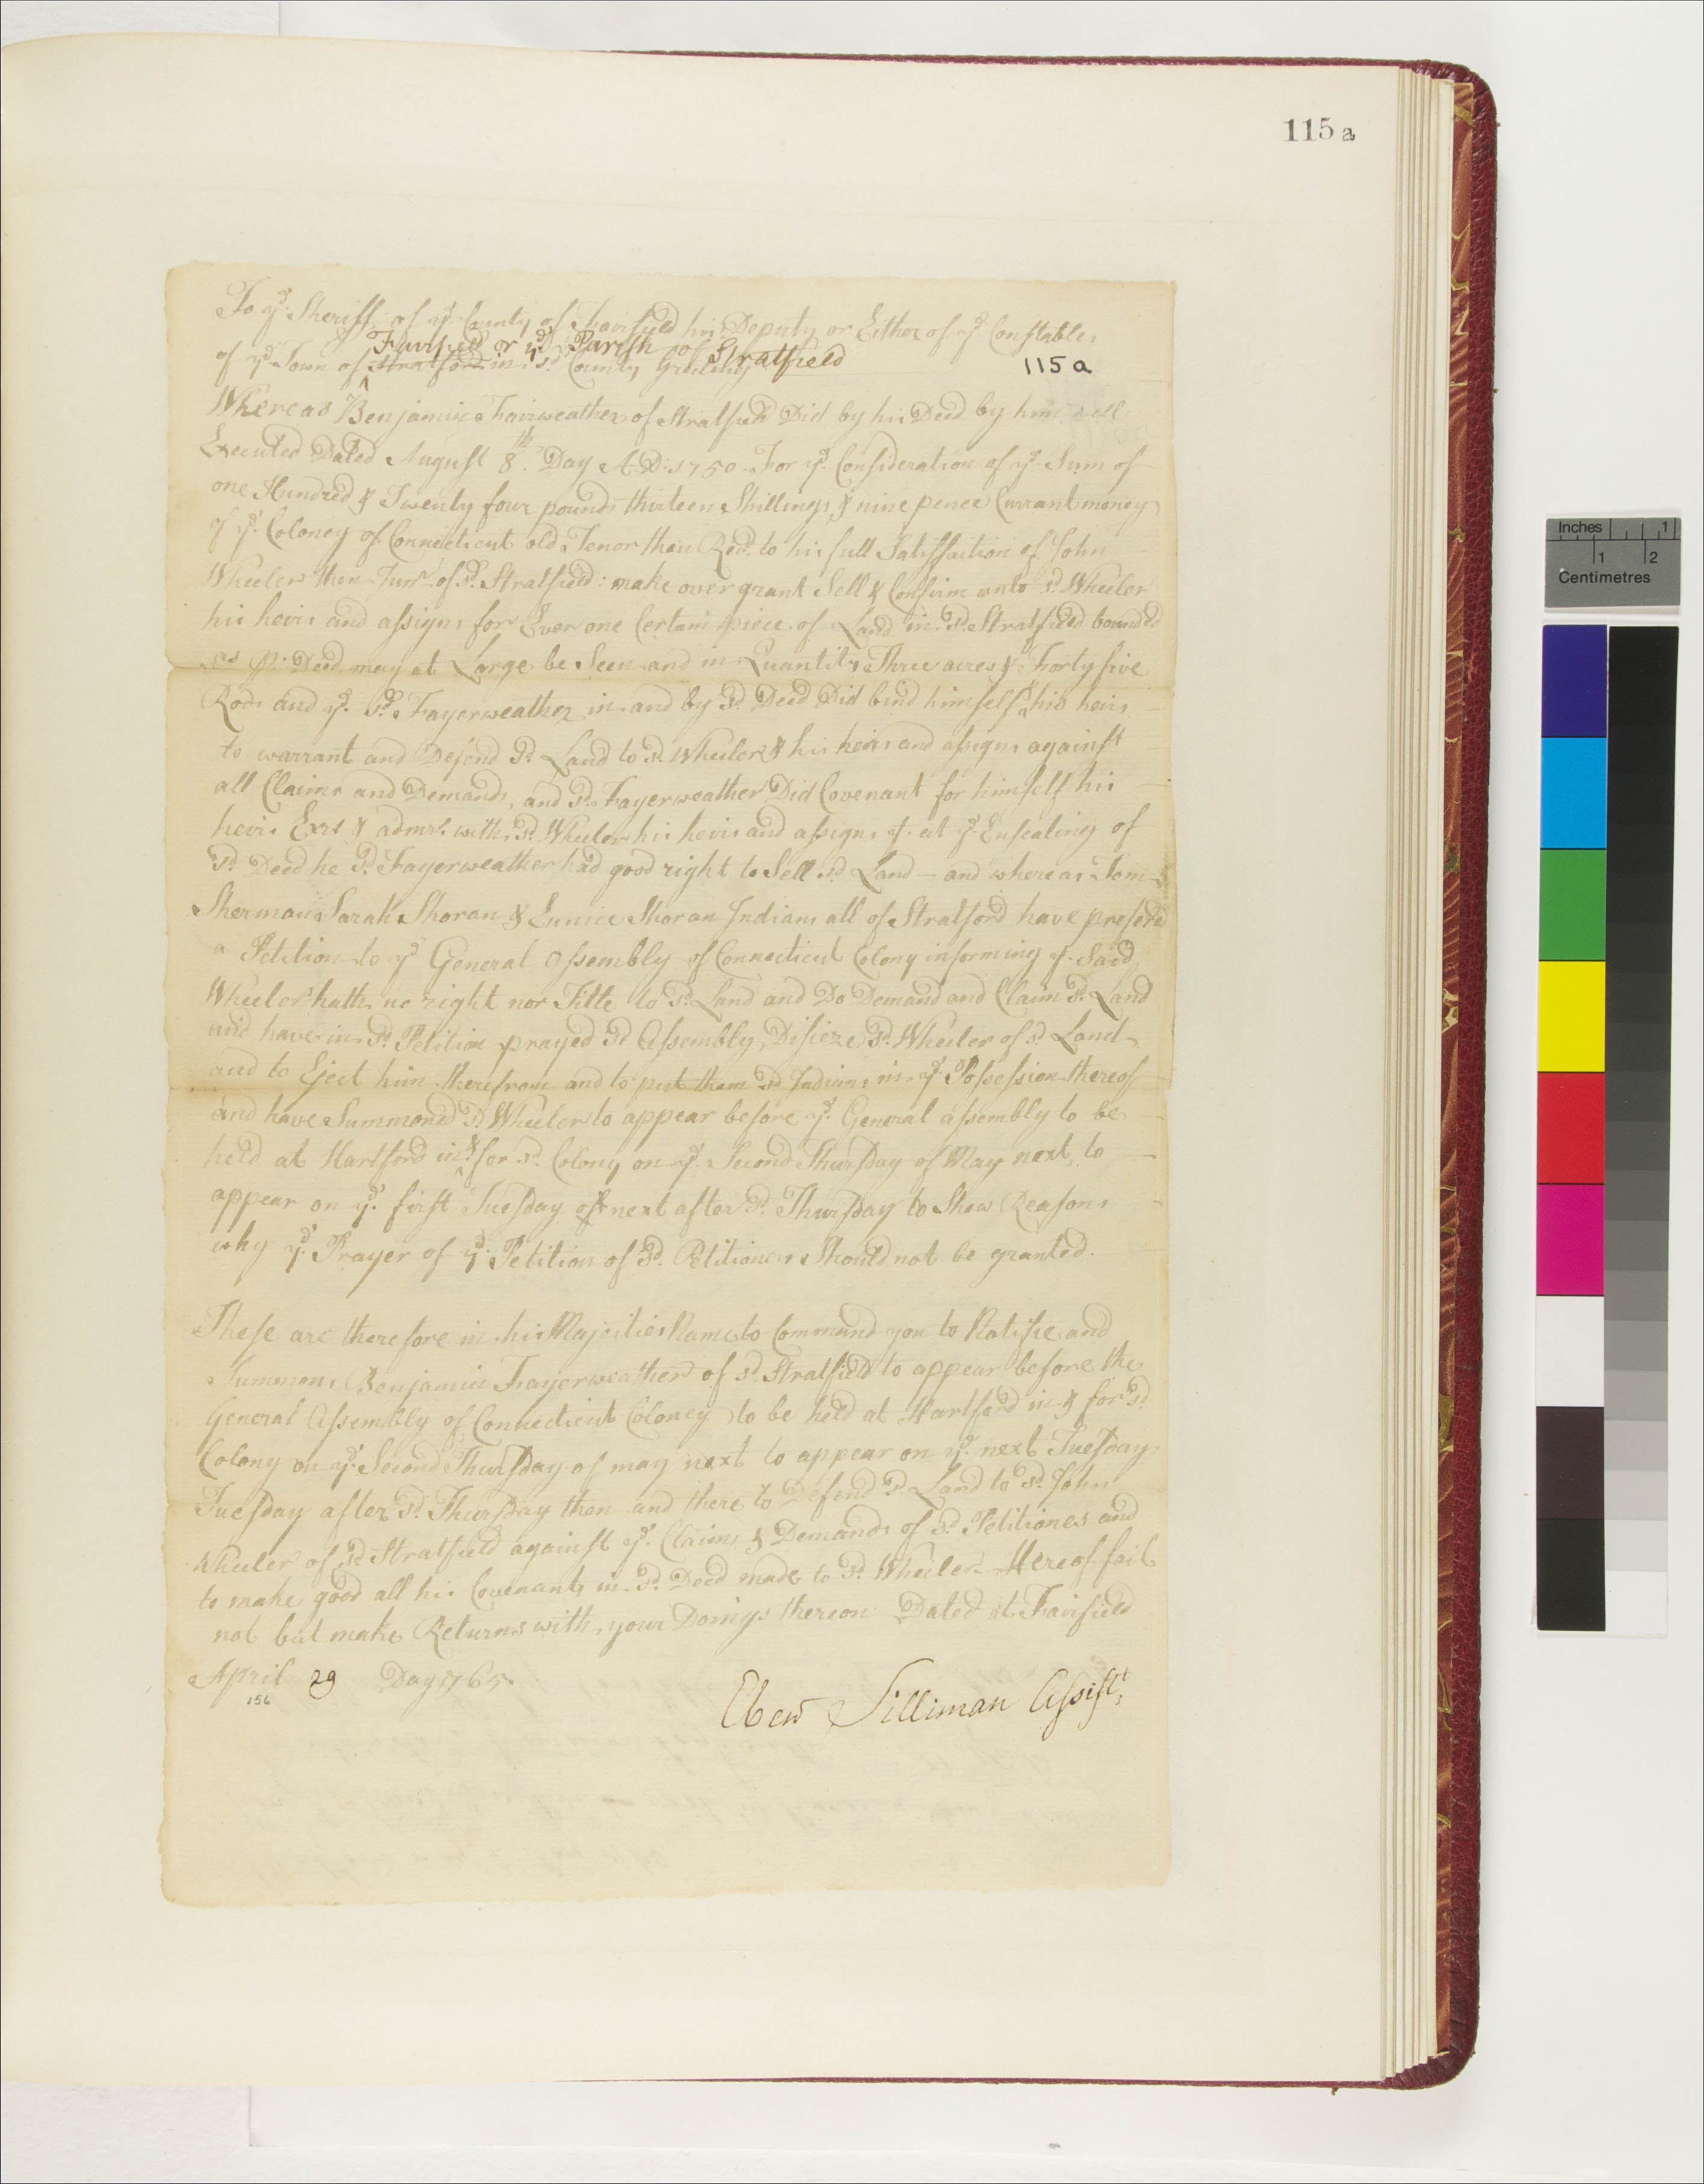 115 a
To yᵉ Sheriff of yᵉ County of Fairfield his Deputy or Either of yᵉ Constables
Fairfield or yᵉ Parish of Stratfield
of yᵉ Town of Stratford in sd. County Greeting
115 a
Whereas Benjamin Fairweather of Stratfield Did by his Deed by him well
Executed Dated August 8th. Day A:D:1750 - For yᵉ. Consideration of yᵉ. Sum of
one Hundred & Twenty four pounds thirteen Shillings & nine pence Currant money
of yᵉ. Coloney of Connecticut old Tenor then Recd. to his full Satisfaction of John
Wheeler then Junr. of sd. Stratfield: make over grant Sell & Confirm unto sd. Wheeler
his heirs and assigns for Ever one Certain piece of Land in sd. Stratfield bounded
as pr. Deed may at Large be Seen and in Quantity Three acres & Forty five
Rods and yᵉ. sd. Fayerweather in and by sd Deed Did bind himself & his heirs
to warrant and Defend sd. Land to sd. Wheeler & his heirs and assigns against
all Claims and Demands, and sd. Fayerweather Did Covenant for himself his
heirs Exrs & admrs. with sd. Wheeler his heirs and assigns yt. at yᵉ. Ensealing of
sd. Deed he sd. Fayerweather had good right to Sell sd. Land - and whereas Tom
Sherman Sarah Shoran & Eunice Shoran Indians all of Stratford have prefered
a Petition to yᵉ General Assembly of Connecticut Colony informing yt. Said
Wheeler hath no right nor Title to sd. Land and Do Demand and Claim sd. Land
and have in sd. Petition prayed sd Assembly, Disieze sd. Wheeler of sd Land
and to Eject him therefrom and to put them sd Indians in yᵉ. Possession thereof
and have Summoned sd. Wheeler to appear before yᵉ. General assembly to be
held at Hartford in & for sd. Colony on yᵉ. Second Thursday of May next, to
appear on yᵉ. first Tuesday of next after sd. Thursday to Shew Reasons
why yᵉ. Prayer of yᵉ Petition of sd. Petitioners Should not be granted.
These are therefore in his Majesties Name to Command you to Notifie and
Summons Benjamin Fayerweather of sd. Stratfield to appear before the
General Assembly of Connecticut Coloney to be held at Hartford in & for sd.
Colony on yᵉ. Second Thursday of may next to appear on yᵉ. next Tuesday
Tuesday after sd. Thursday then and there to Defend sd. Land to sd. John
Wheeler of sd Stratfield against yᵉ. Claims & Demands of sd. Petitiones and
to make good all his Covenants in sd. Deed made to sd. Wheeler. Hereof fail
not but make Returns with your Doings thereon Dated at Fairfield
April 29 Day 1765
156
Ebenr Silliman Assist;